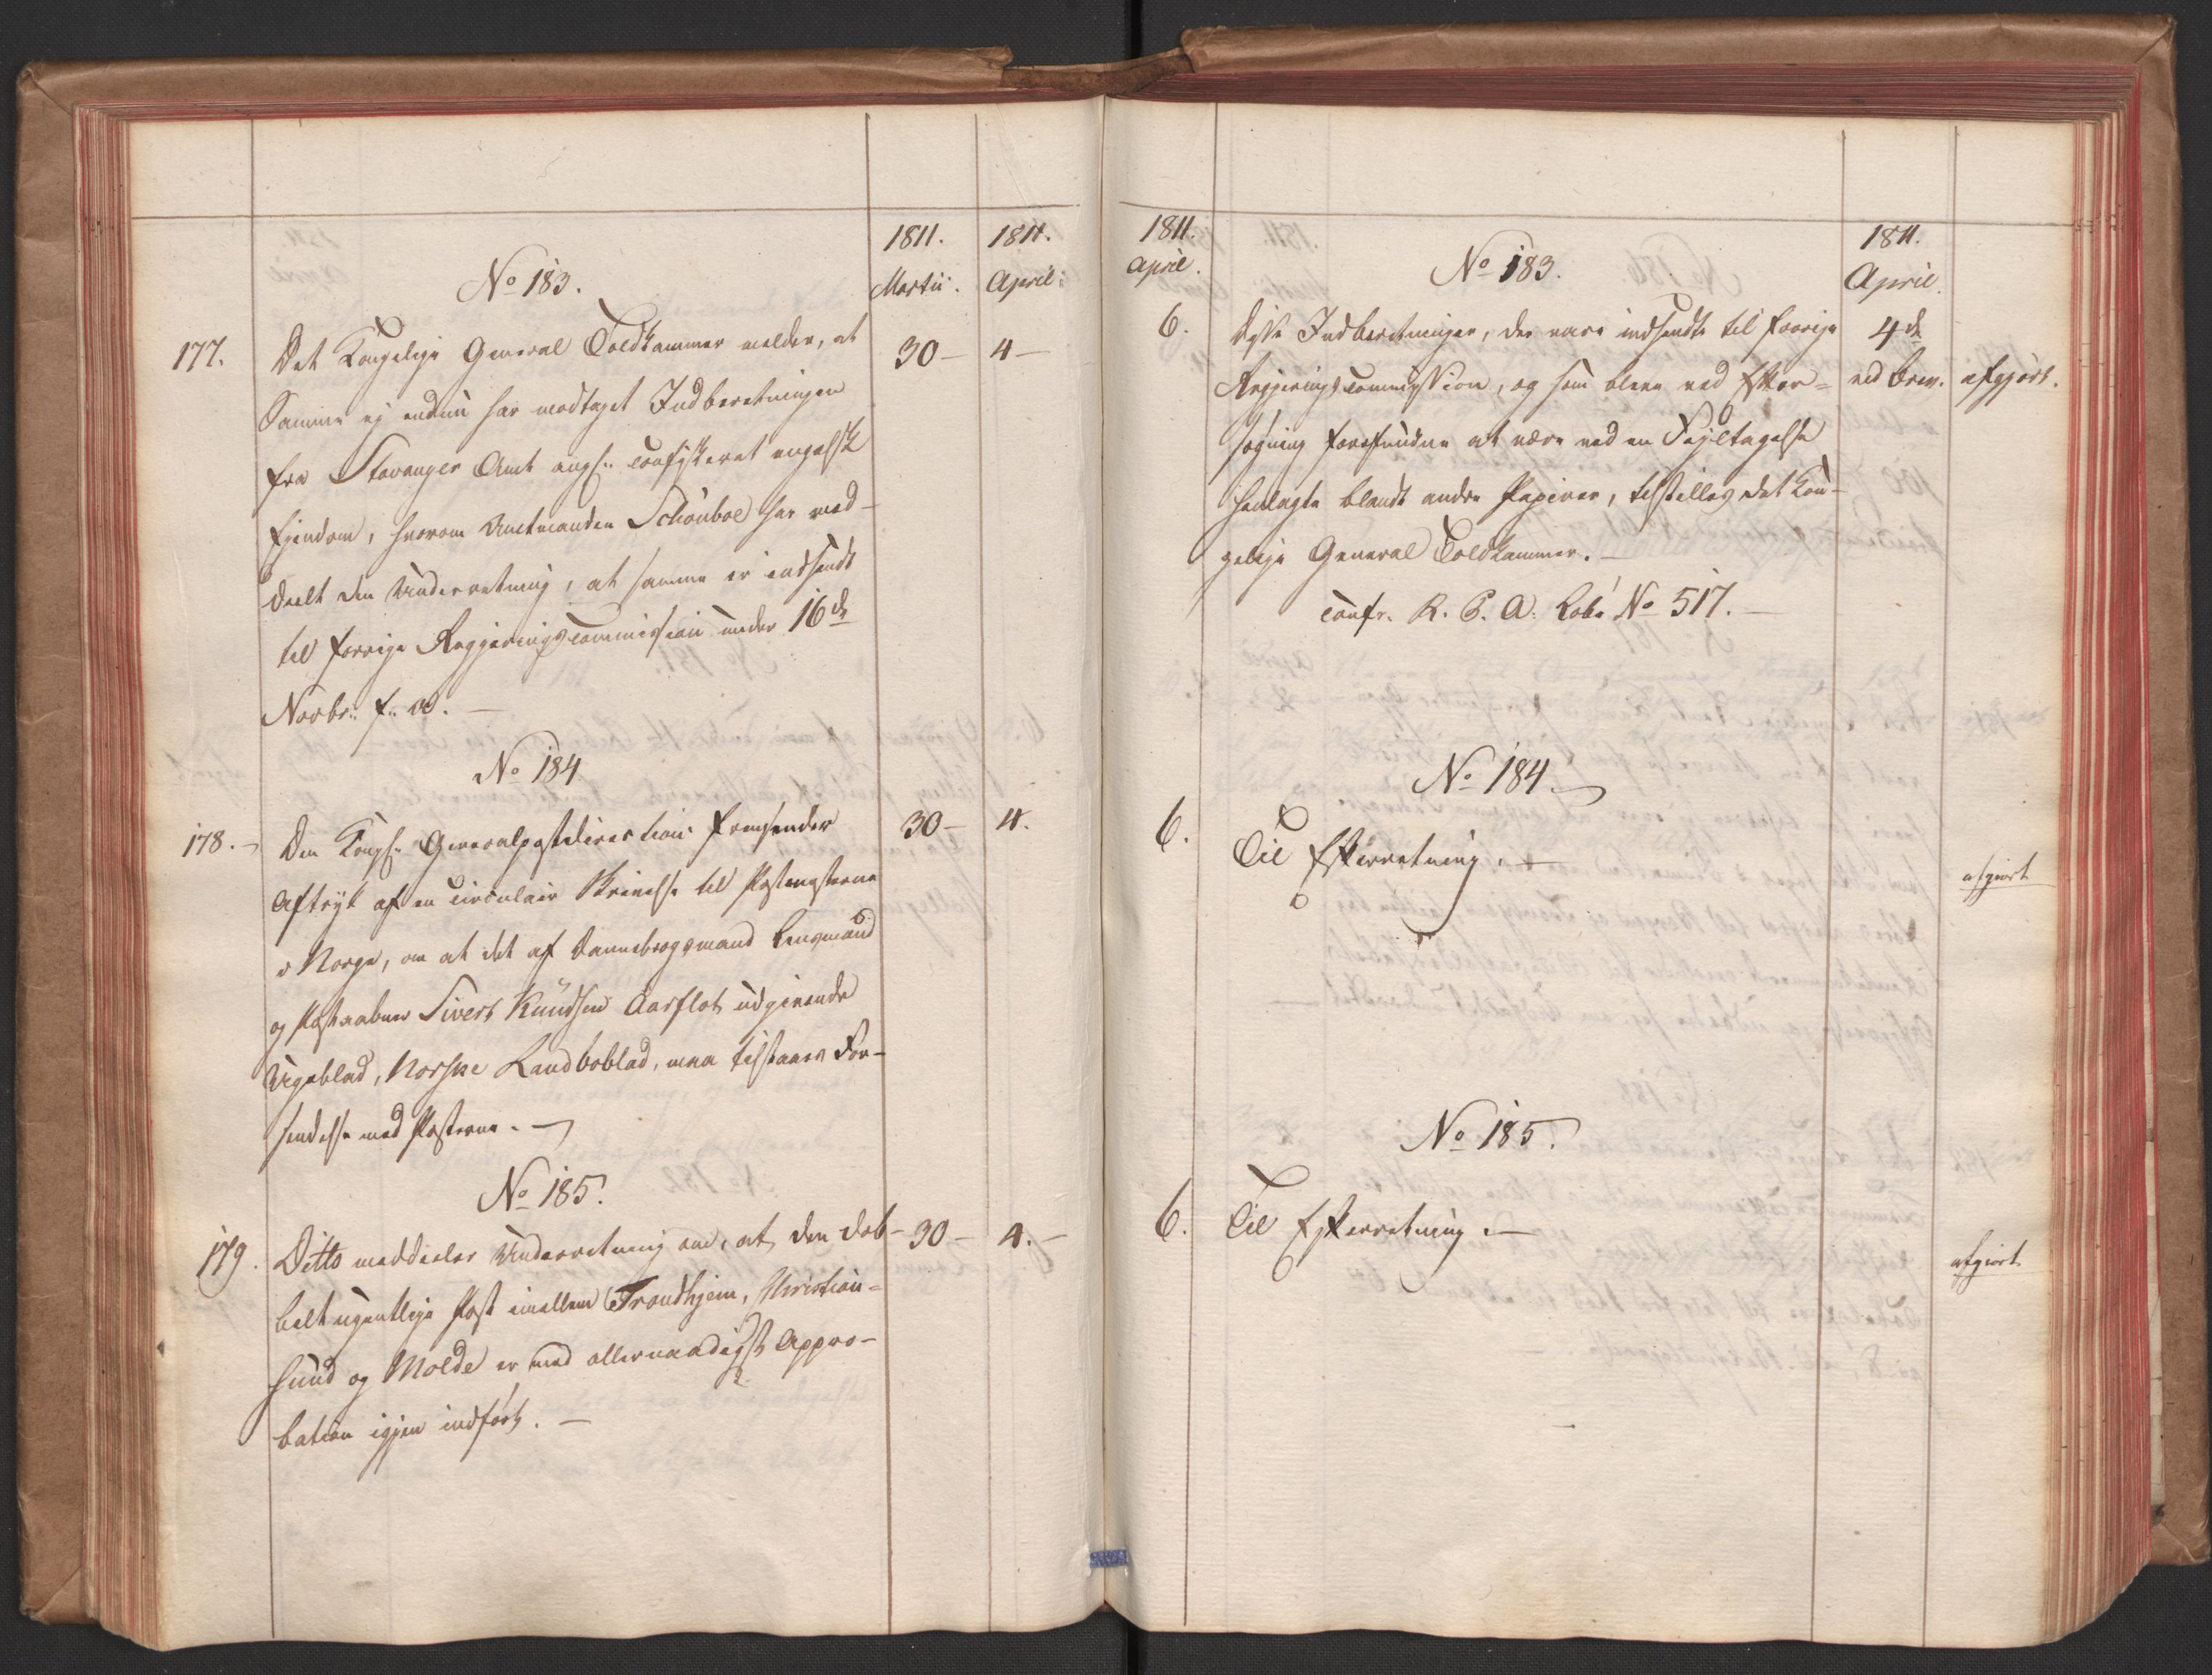 1811. 1811.
Martii. April.
No 183.
177. Det Kongelige General Toldkammer melder, at 30 — 4 —
Samme ej endnu har modtaget Indberetningen
fra Stavanger Amt angl: confiskeret engelsk
Ejendom, hvorom Amtmanden Schønboe har med-
deelt den Underretning, at samme er indsendt
til forrige Regjerings Commission under 16de
Novbr: f: A. —
No 184
178. — Den Kongl: Generalpostdirection fremsender 30 — 4.
Aftryk af en circulair Skrivelse til Postmesterne
i Norge, om at det af Dannebrogsmand Lensmand
og Postaabner Sivert Knudsen Aarflot udgivende
Ugeblad, Norske Landboblad, maa tilstaaes For-
sendelse med Posterne. —
No 185.
179. Ditto meddeeler Underretning om, at den dob- 30 — 4. —
belt ugentlige Post imellem Trondhjem, Christian-
sund og Molde er med allernaadigst Appro-
bation igjen indført. —
1811. 1811.
April. April.
No 183.
6. Disse Indberetninger, der vare indsendte til forrige 4de
Regjerings Commission, og som bleve ved Efter- ved Brev. afgjørt.
søgning forefundne at være ved en Fejltagelse
henlagte blandt andre Papirer, tilstilles det Kon-
gelige General Toldkammer. —
confr. R. C. A. No 517. —
No 184. —
6. Til Efterretning. — afgiort
No 185.
6. Til Efterretning. — afgiort